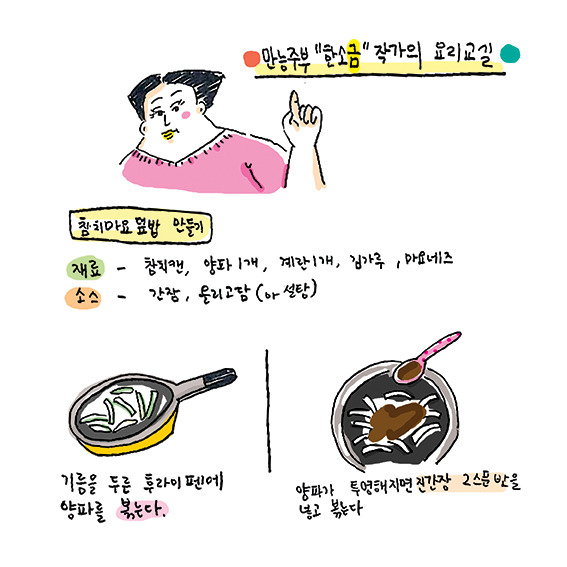 만능주부 "한소금" 작가의 요리교실
참치마요 덮밥 만들기
재료 - 참치캔, 양파1개, 계란1개, 김가루, 마요네즈
소스 - 간장, 올리고당 (or 설탕)
기름을 두른 후라이펜에
양파를 볶는다.
양파가 투명해지면 진간장 2스푼반을
넣고 볶는다